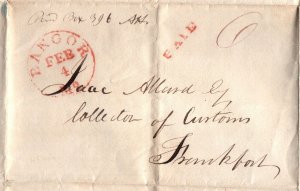 Paid Box 396
PAID
6
BANGOR
FEB
4
Isaac Allard Esq
Collector of Customs
Frankfort